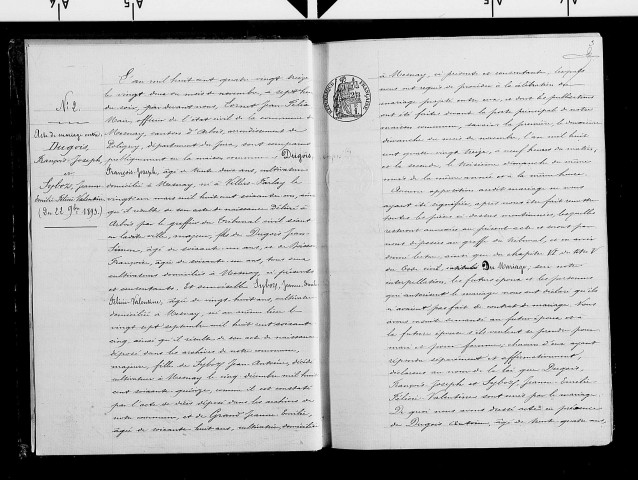 N° 2.
Acte de mariage entre
Dugois,
François Joseph,
et
Sylvoz, Jeanne
Emilie Félicie Valentine,
(Du 22 9bre 1893.)
L'an mil huit cent quatre vingt treize
le vingt deux du mois de novembre, à sept heures
du soir, par devant nous, Jean Félix
Maire, officier de l'état civil de la commune de
Mesnay, canton d'Arbois, arrondissement de
Poligny, département du Jura, sont comparus
publiquement en la maison commune, Dugois,
François Joseph, âgé de trente deux ans, cultivateur
domicilié à Mesnay, né à Villers Farlay le
vingt un mars mil huit cent soixante un, ainsi
qu'il résulte de son acte de naissance délivré à
Arbois par le greffier du Tribunal civil séant
en ladite ville, majeur, fils de Dugois Jean
Simon, âgé de soixante ans, et de
Françoise, âgée de soixante ans, tous deux
cultivateurs domiciliés à Mesnay, ci présents
et consentants. Et demoiselle Sylvoz, Jeanne Emilie
Félicie Valentine, âgée de vingt huit ans, cultivatrice
domiciliée à Mesnay, née au même lieu le
vingt sept septembre mil huit cent soixante
cinq, ainsi qu'il résulte de son acte de naissance
déposé dans les archives de notre commune,
majeure, fille de Sylvoz Jean Antoine, décédé
cultivateur à Mesnay le cinq décembre mil huit
cent soixante quinze, comme il est constaté
par l'acte de décès déposé dans les archives de
notre commune, et de Grand Jeanne Emilie,
âgée de soixante huit ans, cultivatrice, domiciliée
à Mesnay, ci présente et consentante, lesquels
nous ont requis de procéder à la célébration du
mariage projeté entre eux, et dont les publications
ont été faites devant la porte principale de notre
maison commune, savoir: la première, le deuxième
dimanche du mois de novembre, l'an mil huit
cent quatre vingt treize, à neuf heures du matin,
et la seconde, le troisième dimanche du même
mois de la même année et à la même heure.
Aucune opposition audit mariage ne nous
ayant été signifiée, après nous être fait remettre
toutes les pièces ci dessus mentionnées, lesquelles
resteront annexées au présent acte et seront par
nous déposées au greffe du tribunal, et en avoir
donné lecture, ainsi que du chapitre VI du titre V
du Code civil, intitulé Du Mariage, sur notre
interpellation, les futurs époux et les personnes
qui autorisent le mariage nous ont déclaré qu'ils
n'avaient pas fait de contrat de mariage. Nous
avons ensuite demandé au futur époux et à
la future épouse s'ils veulent se prendre pour
mari et pour femme; chacun d'eux ayant
répondu séparément et affirmativement,
déclarons au nom de la loi que Dugois,
François Joseph et Sylvoz Jeanne Emilie
Félicie Valentine sont unis par le mariage.
De quoi nous avons dressé acte en présence
de Dugois âgé de trente quatre ans,